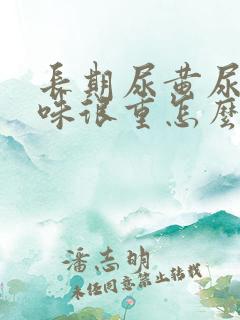 長期尿黄尿
味很重怎麼
潘志明
未经同意禁止转载